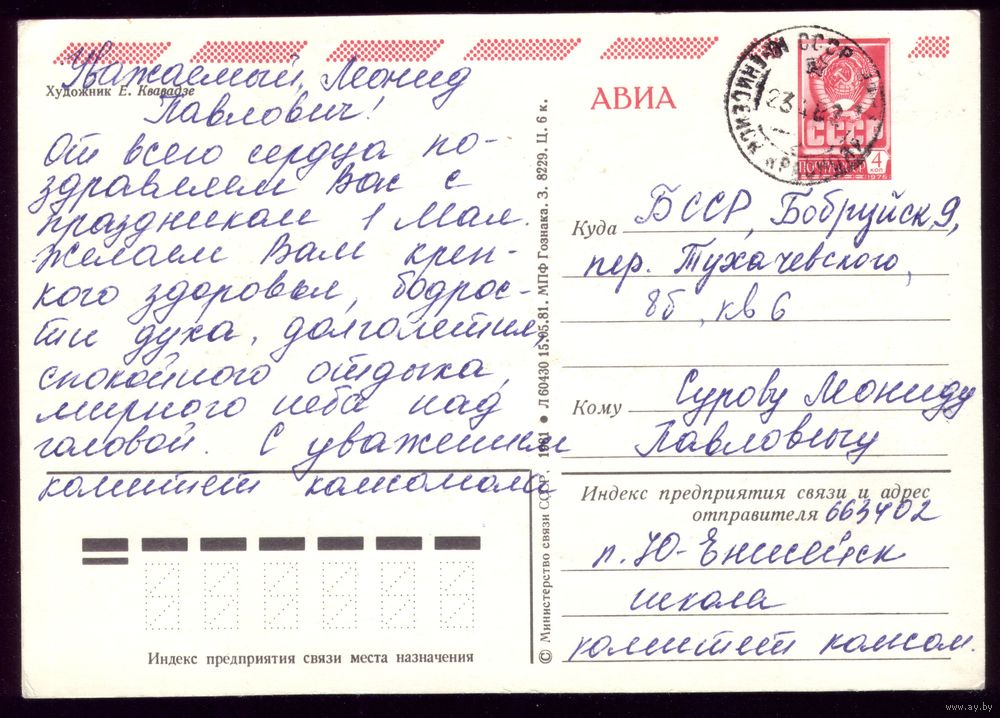 Уважаемый, Леонид
Художник Е. Квавадзе
Павлович!
От всего сердца по-
здравляем Вас с
праздником 1 Мая.
Желаем Вам креп-
кого здоровья, бодрос-
ти духа, долголетия,
спокойного отдыха,
мирного неба над
головой. С уважением
комитет комсомола
Индекс предприятия связи места назначения
© Министерство связи СССР, 1981 • Л 60430 15.05.81. МПФ Гознака. З. 8229. Ц. 6 к.
АВИА
СССР
ПОЧТА СССР
4 коп
1976
Куда БССР, Бобруйск, 9,
пер. Тухачевского,
8б, кв 6
Кому Сурову Леониду
Павловичу
Индекс предприятия связи и адрес
отправителя 663402
п. Ю-Енисейск
школа
комитет комсом.
www.ay.by